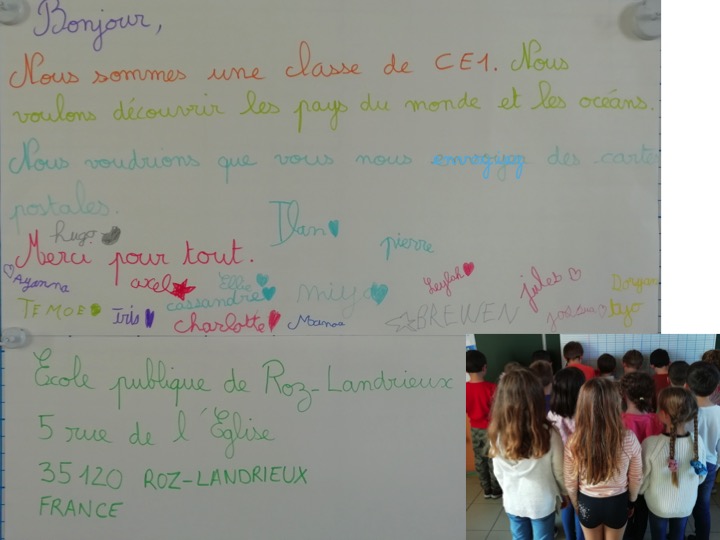 Bonjour,
Nous sommes une classe de CE1. Nous
voulons découvrir les pays du monde et les océans.
Nous voudrions que vous nous envoyiez des carte
postales.
hugo Ilan pierre
Merci pour tout.
Ayanna axel Ellie Leylah jules Dorgan
TEMOE Iris cassandre miya BREWEN tajo
charlotte Manoa
École publique de Roz-Landrieux
5 rue de l'Église
35120 ROZ-LANDRIEUX
FRANCE